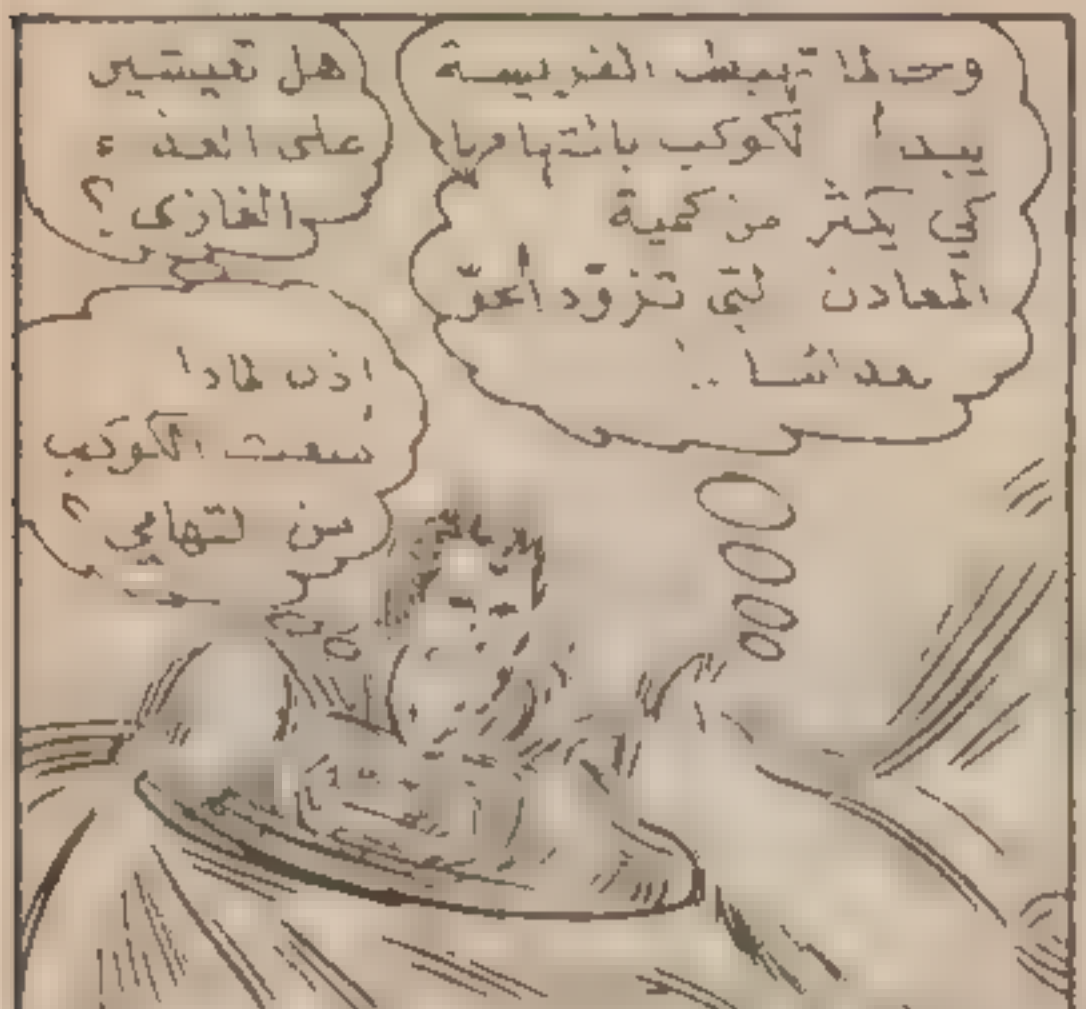 وحالما تهبط الفريسة
يبدأ الكوكب بالتهامها
كي يكثر من كمية
المعادن التي تزود
هل تعيشين
على الغذاء
الغازي ؟
إذن لماذا
الكوكب
من التهامي ؟